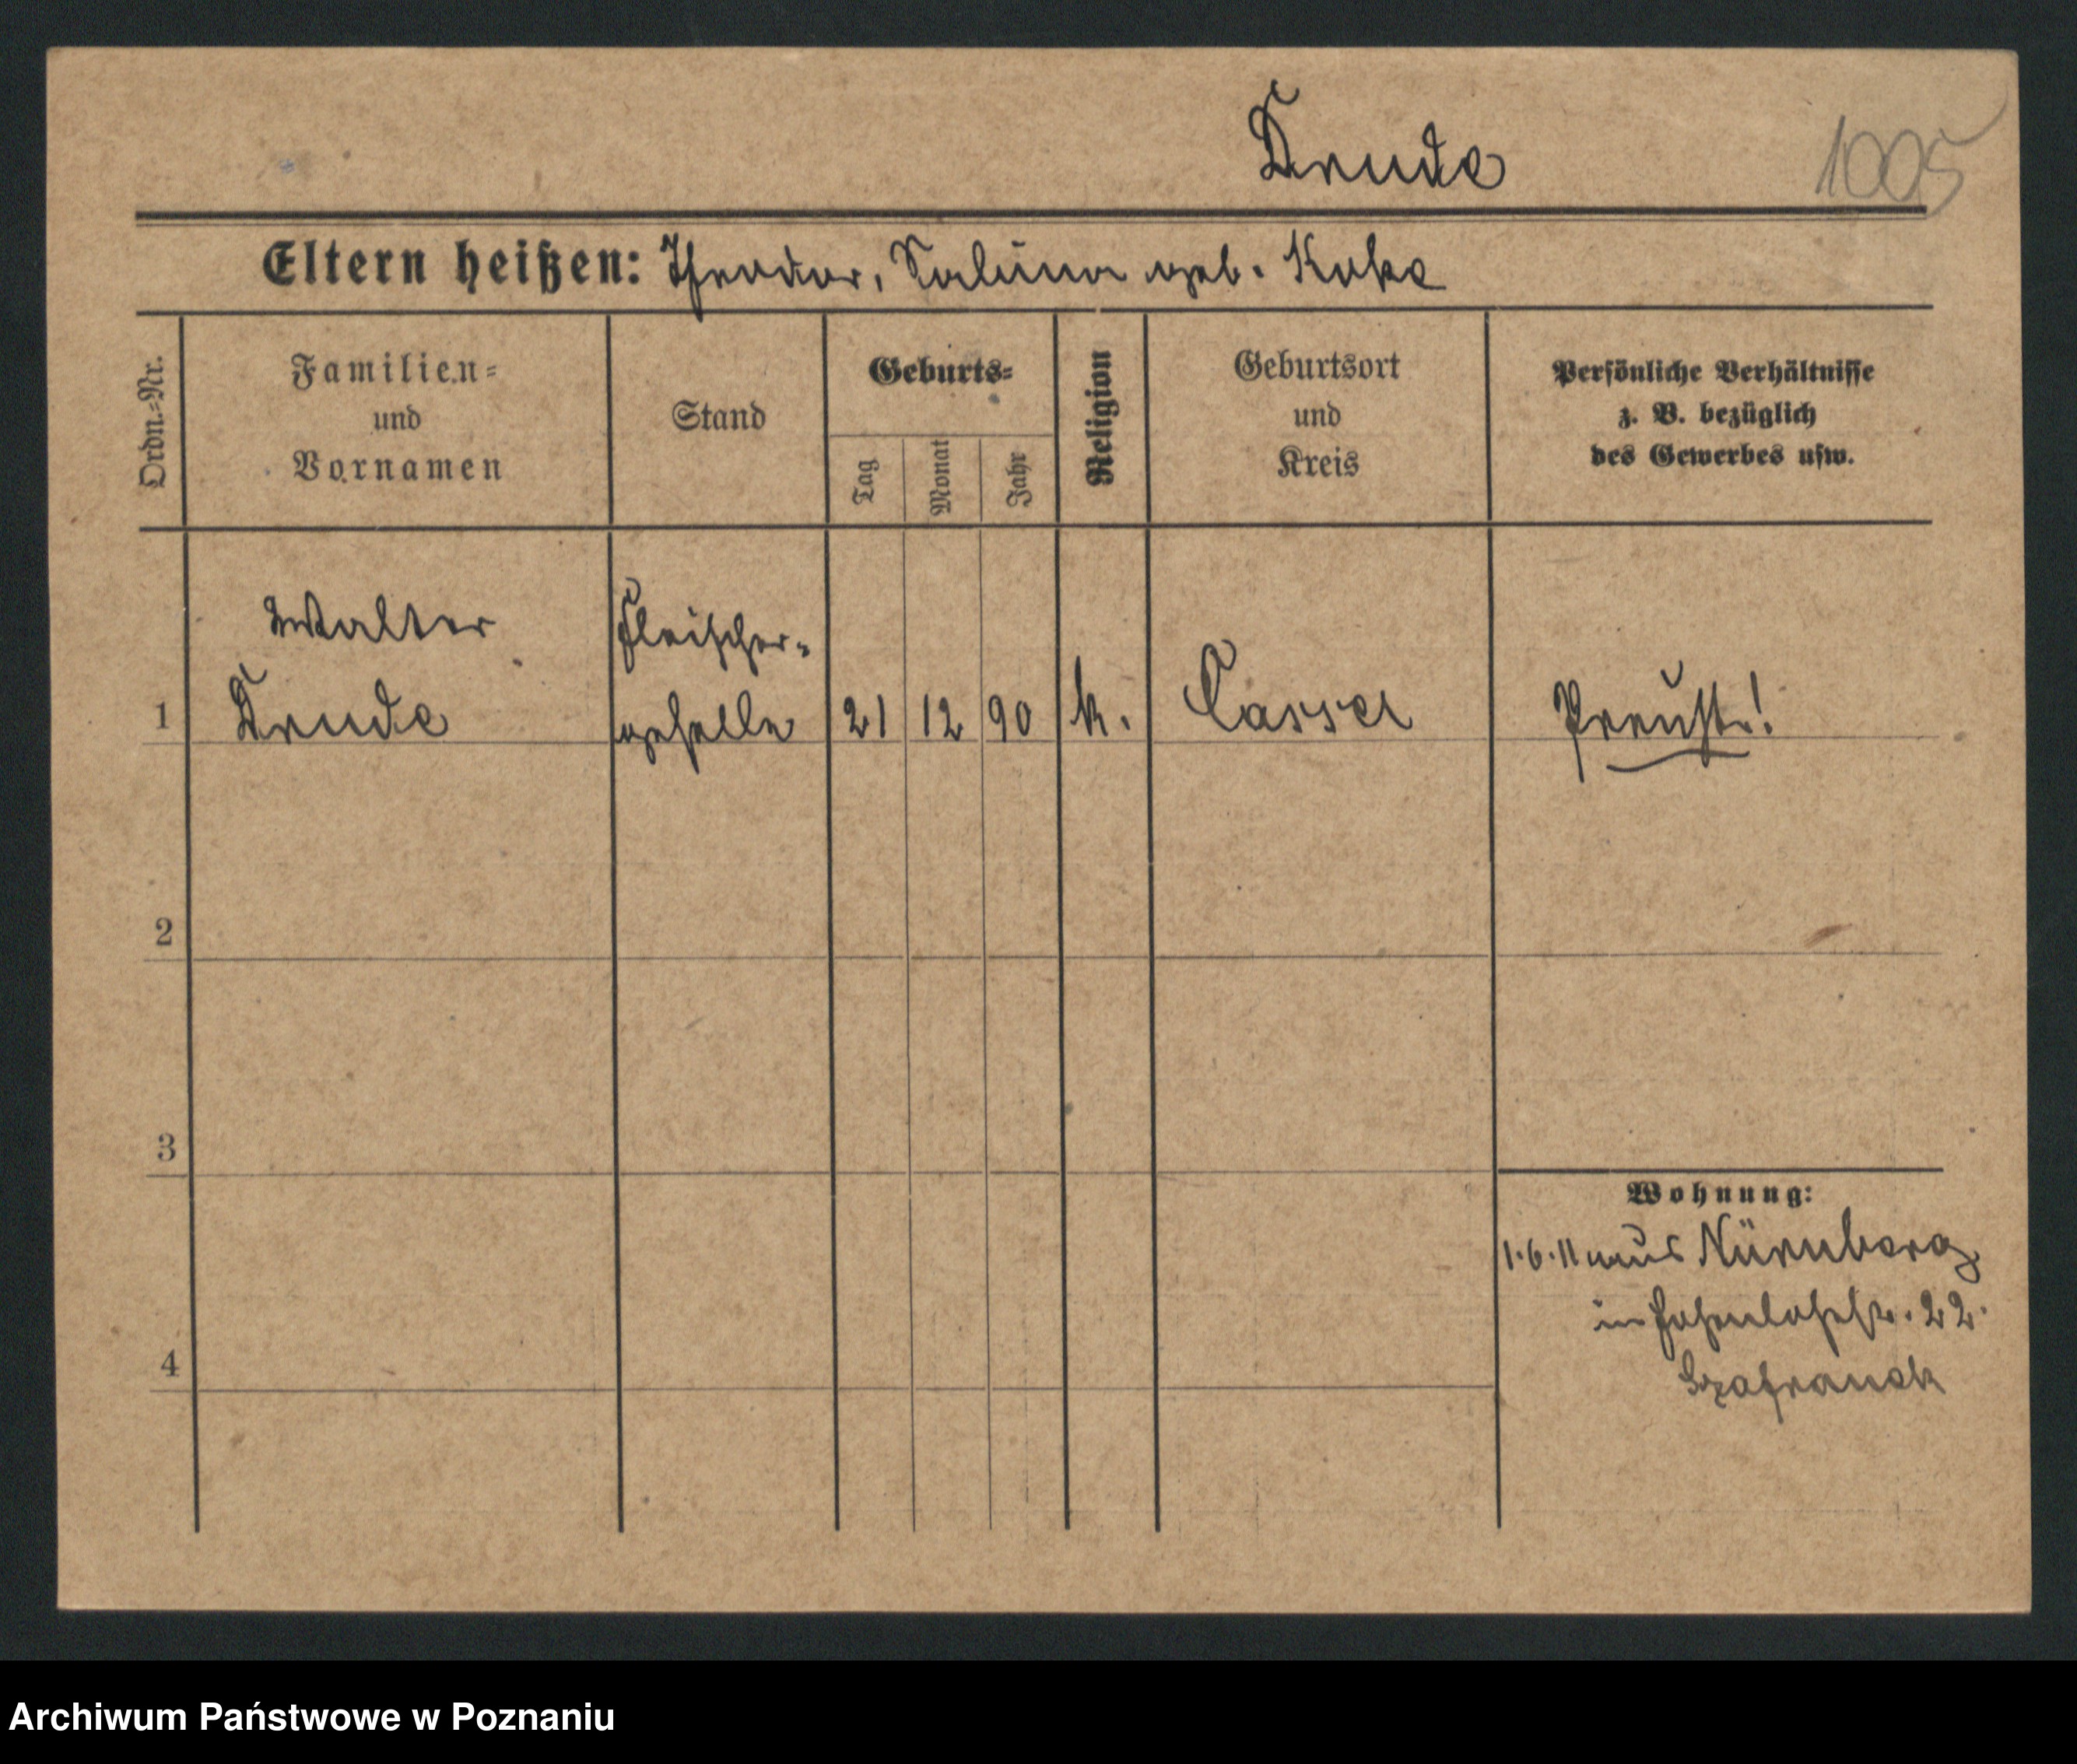 Drude
1005
Eltern heißen: Theodor, geb. Koke
Ordn.=Nr.
Familien=
und
Vornamen
Stand
Geburts=
Tag
Monat
Jahr
Religion
Geburtsort
und
Kreis
Persönliche Verhältnisse
z. B. bezüglich
des Gewerbes usw.
Walter
Drude
Fleischer-
geselle
1
21
12
90
k.
Cassel
Preuße!
2
3
4
Wohnung:
1.6.11 aus Nürnberg
in Hohenlohestr. 22.
Szafranek
Archiwum Państwowe w Poznaniu